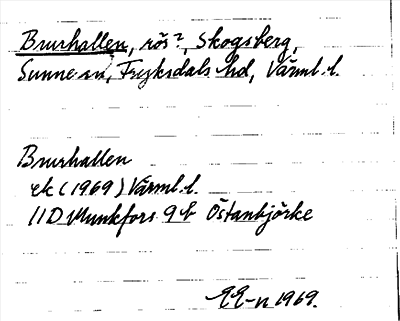 Brurhallen, rös?, Skogsberg,
Sunne sn, Fryksdals hd, Värml. l.
Brurhallen
ek (1969) Värml. l.
11D Munkfors 9b Östanbjörke
1969.